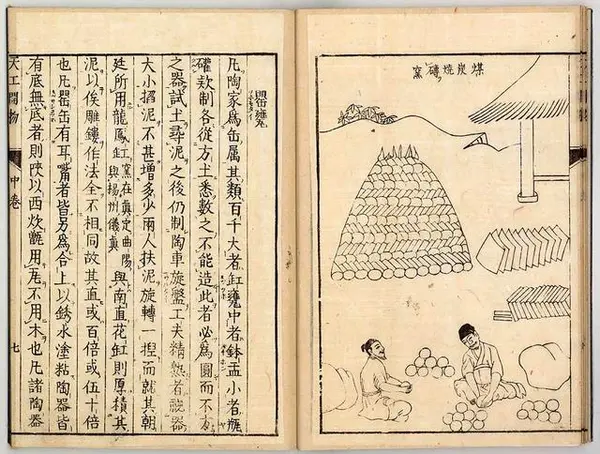 煤炭燒磚窯
罌甕
凡陶家爲缶屬其類百千大者缸甕中者鉢盂小者瓶
礶款制各從方土悉數之不能造此者必爲圓而不方
之器試土尋泥之後仍制陶車旋盤工夫精熟者視器
大小掐泥不甚增多少兩人扶泥旋轉一捏而就其朝
廷所用龍鳳缸窯在眞定曲陽與揚州儀眞與南直花缸則厚積其
泥以俟雕鏤作法全不相同故其直或百倍或伍十倍
也凡罌缶有耳嘴者皆另爲合上以銹水塗粘陶器皆
有底無底者則陝以西炊甑用瓦不用木也凡諸陶器
天工開物
中卷
七